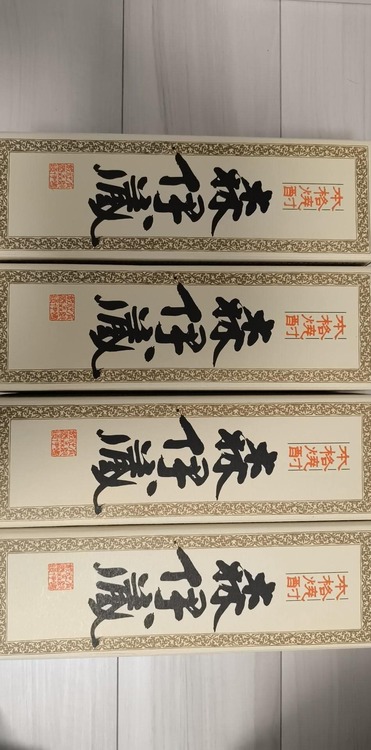 本格焼酎
森伊蔵
本格焼酎
森伊蔵
本格焼酎
森伊蔵
本格焼酎
森伊蔵